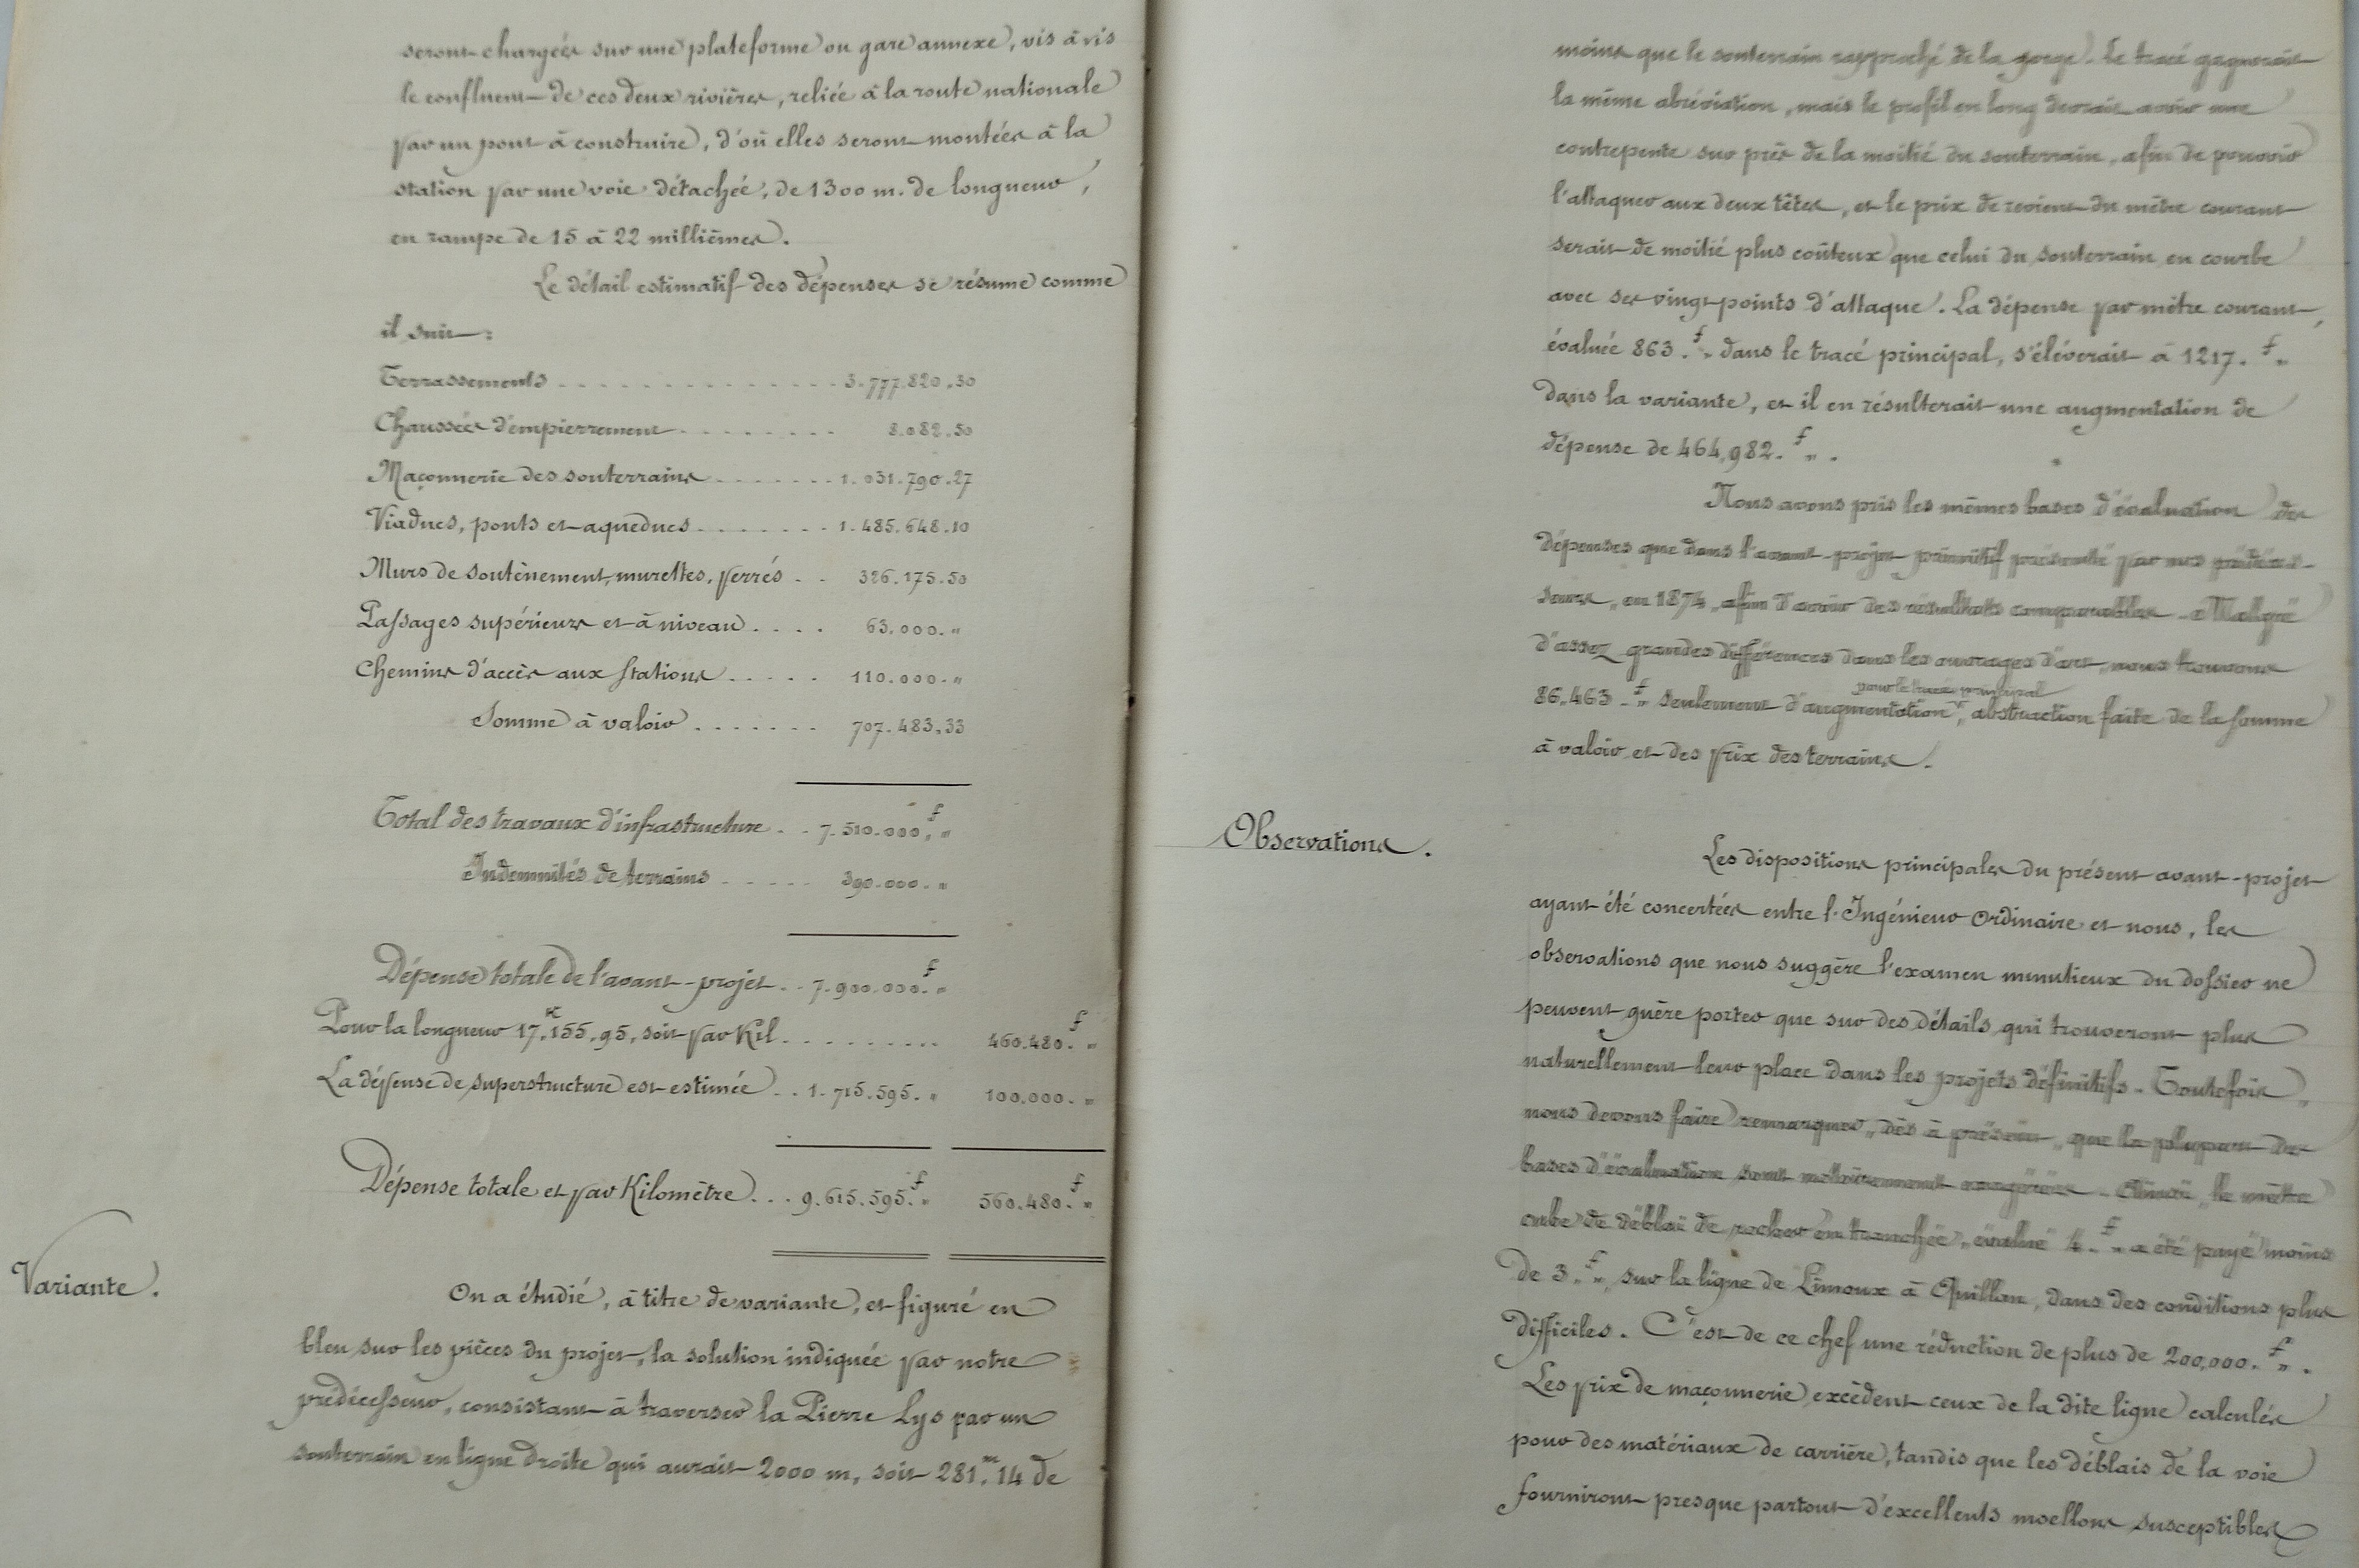 seront chargées sur une plateforme ou gare annexe, vis à vis
le confluent de ces deux rivières, reliée à la route nationale
par un pont à construire, d'où elles seront montées à la
station par une voie détachée, de 1300 m. de longueur,
en rampe de 15 à 22 millièmes.
Le détail estimatif des dépenses se résume comme
il suit :
Terrassements . . . . . . . . . . . . 3.777.820,30
Chaussées d'empierrement . . . . . . . . 8.082.50
Maçonnerie des souterrains . . . . . . . 1.031.790.27
Viaducs, ponts et aqueducs . . . . . . . 1.485.648.10
Murs de soutènement, murettes, perrés . . 326.175.50
Passages supérieurs et à niveau . . . . 63.000. "
Chemins d'accès aux stations . . . . . 110.000. "
Somme à valoir . . . . . . . 707.483,33
Total des travaux d'infrastructure . . 7.510.000,f "
Indemnités de terrains . . . . . 390.000. "
Dépense totale de l'avant-projet . . 7.900.000.f "
Pour la longueur 17.K155,95, soit par Kil. . . . . . . . . . 460.480.f "
La dépense de superstructure est estimée . . 1.715.595. " 100.000. "
Dépense totale et par Kilomètre . . . 9.615.595.f " 560.480.f "
Variante.
On a étudié, à titre de variante, et figuré en
bleu sur les pièces du projet, la solution indiquée par notre
prédécesseur, consistant à traverser la Pierre Lys par un
souterrain en ligne droite qui aurait 2000 m, soit 281.m14 de
moins que le souterrain rapproché de la gorge. Le tracé gagnerait
la même abréviation, mais le profil en long devrait avoir une
contrepente sur près de la moitié du souterrain, afin de pouvoir
l'attaquer aux deux têtes, et le prix de revient du mètre courant
serait de moitié plus coûteux que celui du souterrain en courbe
avec ses vingt points d'attaque. La dépense par mètre courant,
évaluée 863.f " dans le tracé principal, s'élèverait à 1217.f "
dans la variante, et il en résulterait une augmentation de
dépense de 464,982.f " .
Nous avons pris les mêmes bases d'évaluation des
dépenses que dans l'avant-projet primitif présenté par nos prédéces-
seurs, en 1874, afin d'avoir des résultats comparables. Malgré
d'assez grandes différences dans les ouvrages d'art, nous trouvons
pour le tracé principal
86.463.f " seulement d'augmentation, abstraction faite de la somme
à valoir et des prix des terrains.
Observations.
Les dispositions principales du présent avant-projet
ayant été concertées entre l'Ingénieur Ordinaire et nous, les
observations que nous suggère l'examen minutieux du dossier ne
peuvent guère porter que sur des détails qui trouveront plus
naturellement leur place dans les projets définitifs. Toutefois,
nous devons faire remarquer, dès à présent, que la plupart des
bases d'évaluation sont notoirement exagérées. Ainsi, le mètre
cube de déblai de rocher en tranchée, évalué 4.f " a été payé moins
de 3.f ", sur la ligne de Limoux à Quillan, dans des conditions plus
difficiles. C'est de ce chef une réduction de plus de 200,000.f " .
Les prix de maçonnerie excèdent ceux de la dite ligne calculés
pour des matériaux de carrière, tandis que les déblais de la voie
fourniront presque partout d'excellents moellons susceptibles